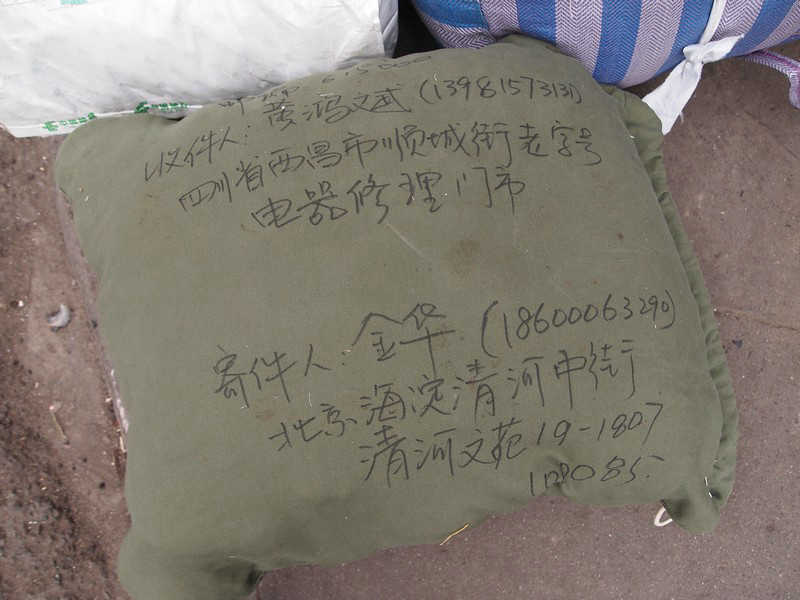 邮编 615000
收件人: 黄鸿文武 (13981573131)
四川省西昌市顺城街老字号
电器修理门市
寄件人: 金华 (18600063290)
北京海淀清河中街
清河文苑19-1807
100085